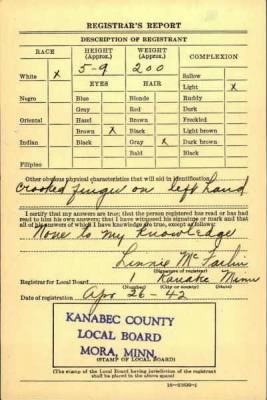 REGISTRAR'S REPORT
DESCRIPTION OF REGISTRANT
RACE HEIGHT (Approx.) WEIGHT (Approx.) COMPLEXION
5-9 200
White X Sallow
EYES HAIR Light X
Negro Blue Blonde Ruddy
Gray Red Dark
Oriental Hazel Brown Freckled
Brown X Black Light brown
Indian Black Gray X Dark brown
Bald Black
Filipino
Other obvious physical characteristics that will aid in identification
Crooked finger on left hand
I certify that my answers are true; that the person registered has read or has had
read to him his own answers; that I have witnessed his signature or mark and that
all of his answers of which I have knowledge are true, except as follows:
None to my knowledge
Linnie Mc
(Signature of registrar)
Registrar for Local Board 1 Kanabec Minn
(Number) (City or county) (State)
Date of registration Apr 26-42
KANABEC COUNTY
LOCAL BOARD
MORA, MINN.
(STAMP OF LOCAL BOARD)
(The stamp of the Local Board having jurisdiction of the registrant
shall be placed in the above space)